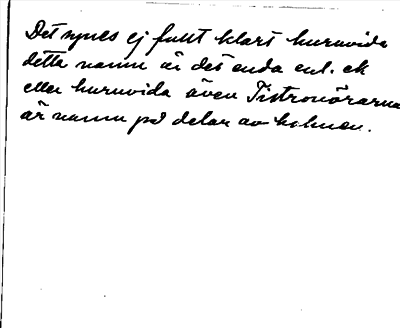 Det synes ej fullt klart huruvida
detta namn är det enda enl. ek
eller huruvida även Tistronörarna
är namn på delar av holmen.